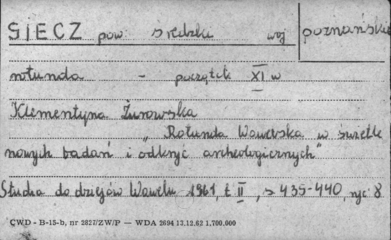 SIECZ pow. średzki woj poznańskie
rotunda - początek XI w
Klementyna Żurowska
"Rotunda Wawelska w świetle
nowych badań i odkryć archeologicznych"
Studia do dziejów Wawelu 1961, t II, s 435-440, ryc. 8
CWD - B-15-b, nr 3827/ZW/P — WDA 2694 13.12.62 1.700.000